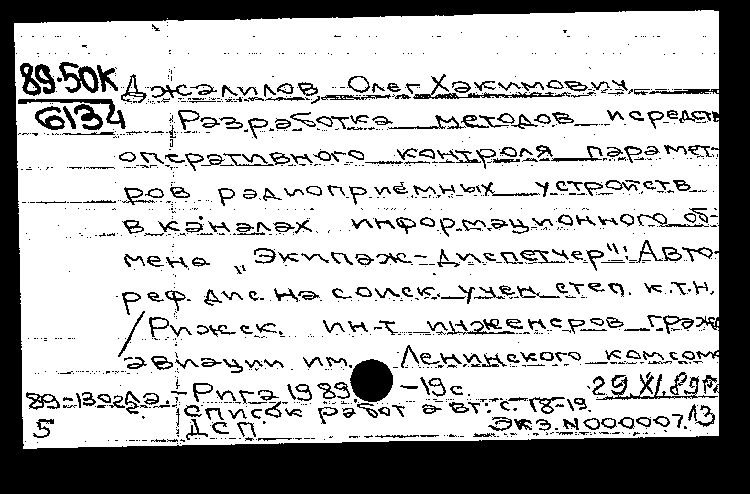 89-50К
6134
Джалилов, Олег Хакимович
Разработка методов и средств
оперативного контроля парамет-
ров радиоприемных устройств
в каналах информационного об-
мена "Экипаж-диспетчер": Авто-
реф. дис. на соиск. учен. степ. к.т.н.
/Рижск. ин-т инженеров граж
авиации им. Ленинского комсом
-Рига, 1989. -19 с. 29.XI.89
Список работ авт.: с. 18-19.
5 ДСП Экз.N000007.